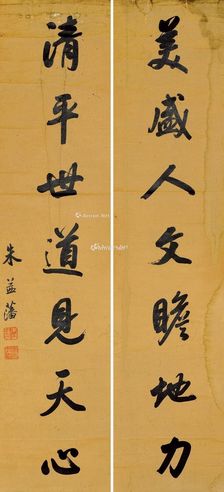 美盛人文瞻地力
清平世道見天心
朱益藩